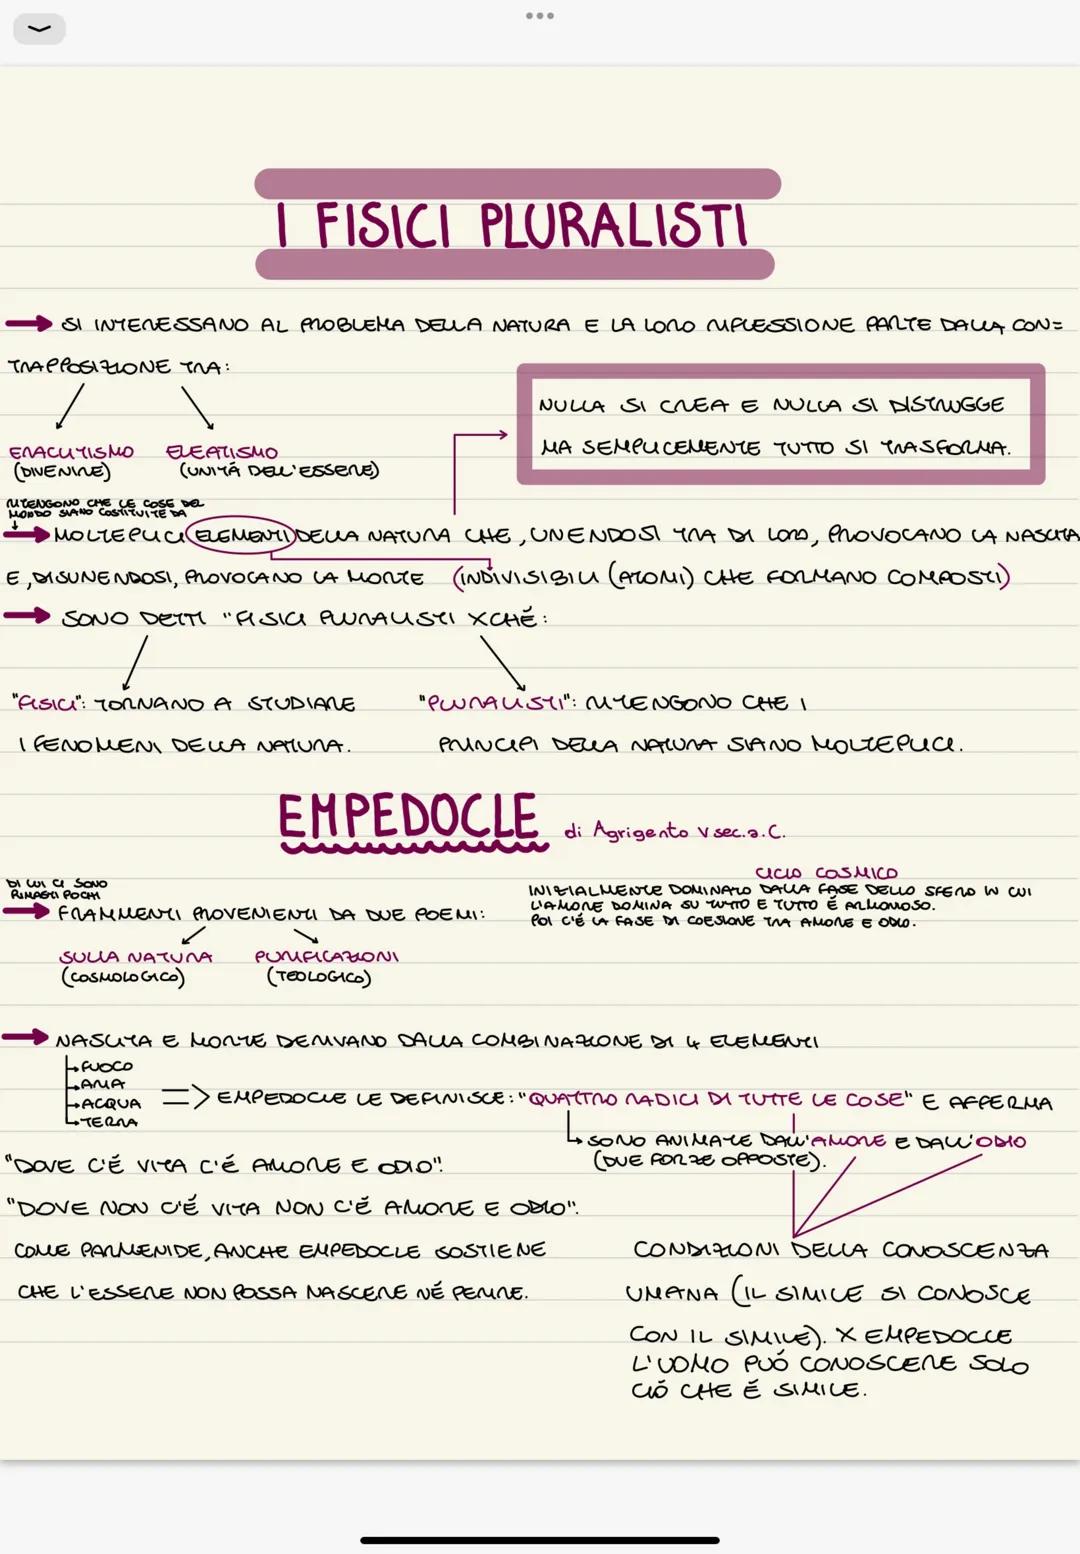 I FISICI PLURALISTI
→ SI INTERESSANO AL PROBLEMA DELLA NATURA E LA LORO RIFLESSIONE PARTE DALLA CON=
TRAPPOSIZIONE TRA:
NULLA SI CREA E NULLA SI DISTRUGGE
MA SEMPLICEMENTE TUTTO SI TRASFORMA.
ERACLITISMO ELEATISMO
(DIVENIRE) (UNITÁ DELL'ESSERE)
RITENGONO CHE LE COSE DEL
MONDO SIANO COSTITUITE DA
→ MOLTEPLICI ELEMENTI DELLA NATURA CHE, UNENDOSI TRA DI LORO, PROVOCANO LA NASCITA
E, DISUNENDOSI, PROVOCANO LA MORTE (INDIVISIBILI (ATOMI) CHE FORMANO COMPOSTI)
→ SONO DETTI "FISICI PLURALISTI XCHÉ:
"FISICI": TORNANO A STUDIARE
I FENOMENI DELLA NATURA.
"PLURALISTI": RITENGONO CHE I
PRINCIPI DELLA NATURA SIANO MOLTEPLICI.
EMPEDOCLE di Agrigento V sec. a.C.
DI LUI CI SONO
RIMASTI POCHI
→ FRAMMENTI PROVENIENTI DA DUE POEMI:
SULLA NATURA PURIFICAZIONI
(COSMOLOGICO) (TEOLOGICO)
CICLO COSMICO
INIZIALMENTE DOMINATO DALLA FASE DELLO SFERO IN CUI
L'AMORE DOMINA SU TUTTO E TUTTO É ARMONIOSO.
POI C'É LA FASE DI COESIONE TRA AMORE E ODIO.
→ NASCITA E MORTE DERIVANO DALLA COMBINAZIONE DI 4 ELEMENTI
→ FUOCO
→ ARIA
→ ACQUA
→ TERRA
=> EMPEDOCLE LE DEFINISCE: "QUATTRO RADICI DI TUTTE LE COSE" E AFFERMA
SONO ANIMATE DALL'AMORE E DALL'ODIO
(DUE FORZE OPPOSTE).
"DOVE C'É VITA C'É AMORE E ODIO".
"DOVE NON C'É VITA NON C'É AMORE E ODIO".
COME PARMENIDE, ANCHE EMPEDOCLE SOSTIENE
CHE L'ESSERE NON POSSA NASCERE NÉ PERIRE.
CONDIZIONI DELLA CONOSCENZA
UMANA (IL SIMILE SI CONOSCE
CON IL SIMILE). X EMPEDOCLE
L'UOMO PUÓ CONOSCERE SOLO
CIÓ CHE É SIMILE.